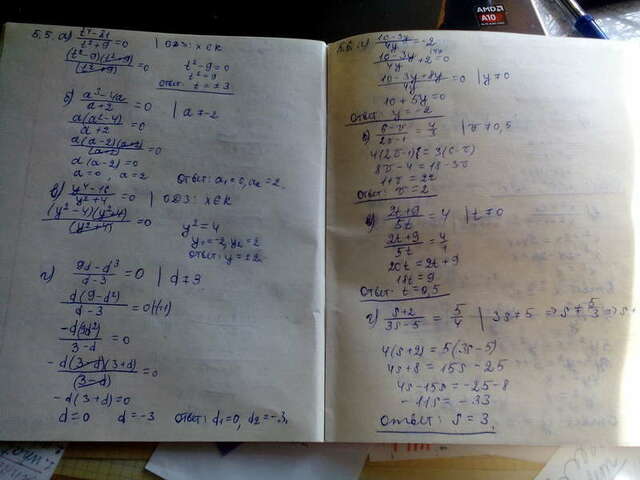 5.5. а) t⁴-81 / t²+9 = 0 | ОДЗ: x∈R
(t²-9)(t²+9) / (t²+9) = 0
t²-9=0
t²=9
Ответ: t=±3
б) a³-4a / a+2 = 0 | a≠-2
a(a²-4) / a+2 = 0
a(a-2)(a+2) / (a+2) = 0
a(a-2)=0
a=0, a=2
Ответ: a₁=0, a₂=2.
в) y⁴-16 / y²+4 = 0 | ОДЗ: x∈R
(y²-4)(y²+4) / (y²+4) = 0
y²=4
y₁=-2, y₂=2
Ответ: y=±2.
г) 9d-d³ / d-3 = 0 | d≠3
d(9-d²) / d-3 = 0 |·(-1)
-d(9-d²) / 3-d = 0
-d(3-d)(3+d) / (3-d) = 0
-d(3+d)=0
d=0 d=-3 Ответ: d₁=0, d₂=-3.
5.6. а) 10-3y / 4y = -2
10-3y / 4y + 2 = 0
10-3y+8y / 4y = 0 | y≠0
10+5y=0
Ответ: y=-2
6-r / 2r-1 = 4/3 | r≠0,5
4(2r-1)=3(6-r)
8r-4=18-3r
11r=22
Ответ: r=2
в) 2t+9 / 5t = 4 | t≠0
2t+9 / 5t = 4/1
20t=2t+9
18t=9
Ответ: t=0,5
г) s+2 / 3s-5 = 5/4 | 3s≠5 ⇒ s≠5/3 ⇒ s≠
4(s+2)=5(3s-5)
4s+8=15s-25
4s-15s=-25-8
-11s=-33
Ответ: s=3.
AMD
A10